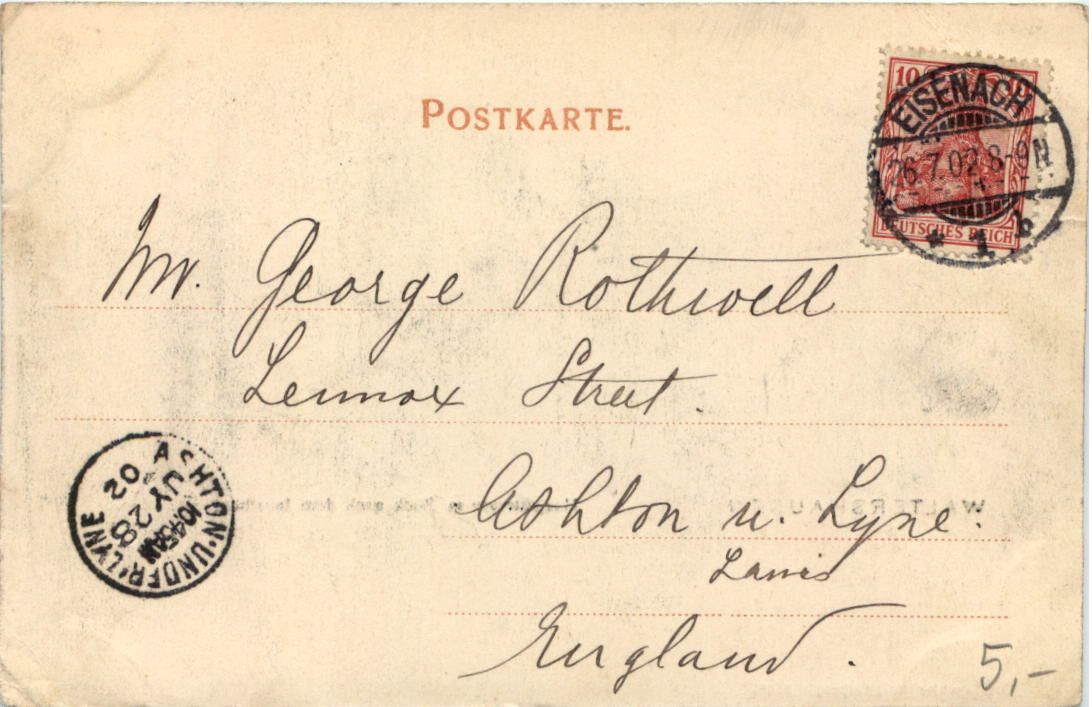 POSTKARTE.
10 10
DEUTSCHES REICH
EISENACH
26.7.02.8-9N
* 1 b
Mr. George Rothwell
Lennox Street.
Ashton u. Lyne.
Lancs
England.
ASHTON-UNDER-LYNE
10.45AM
JY 28
02
WALTERSHAUSEN
5,-